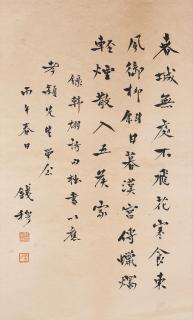 春城無處不飛花寒食東
風御柳斜日暮漢宮傳蠟燭
輕煙散入五侯家
錄韓翃詩 拙書以應
先生
丙午春日
錢穆